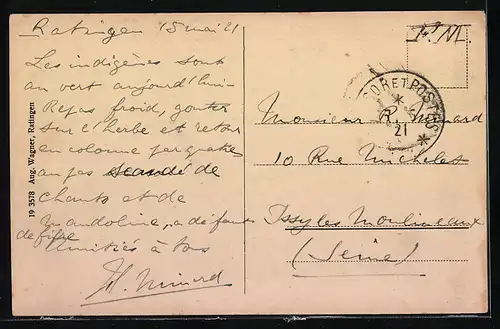 Ratingen 15 mai 21
Les indigènes sont
au vert aujourd'hui -
Repas froid, gouter
sur l'herbe et retour
en colonne par quatre
au pas scandé de
chants et de
mandoline, a défaut
de fifre
Amitiés à tous
19 3578 Aug. Wagner, Ratingen
F. M.
TRESOR ET POSTES
21
Monsieur R. Minard
10 Rue Michelet
Issy les Moulineaux
(Seine)